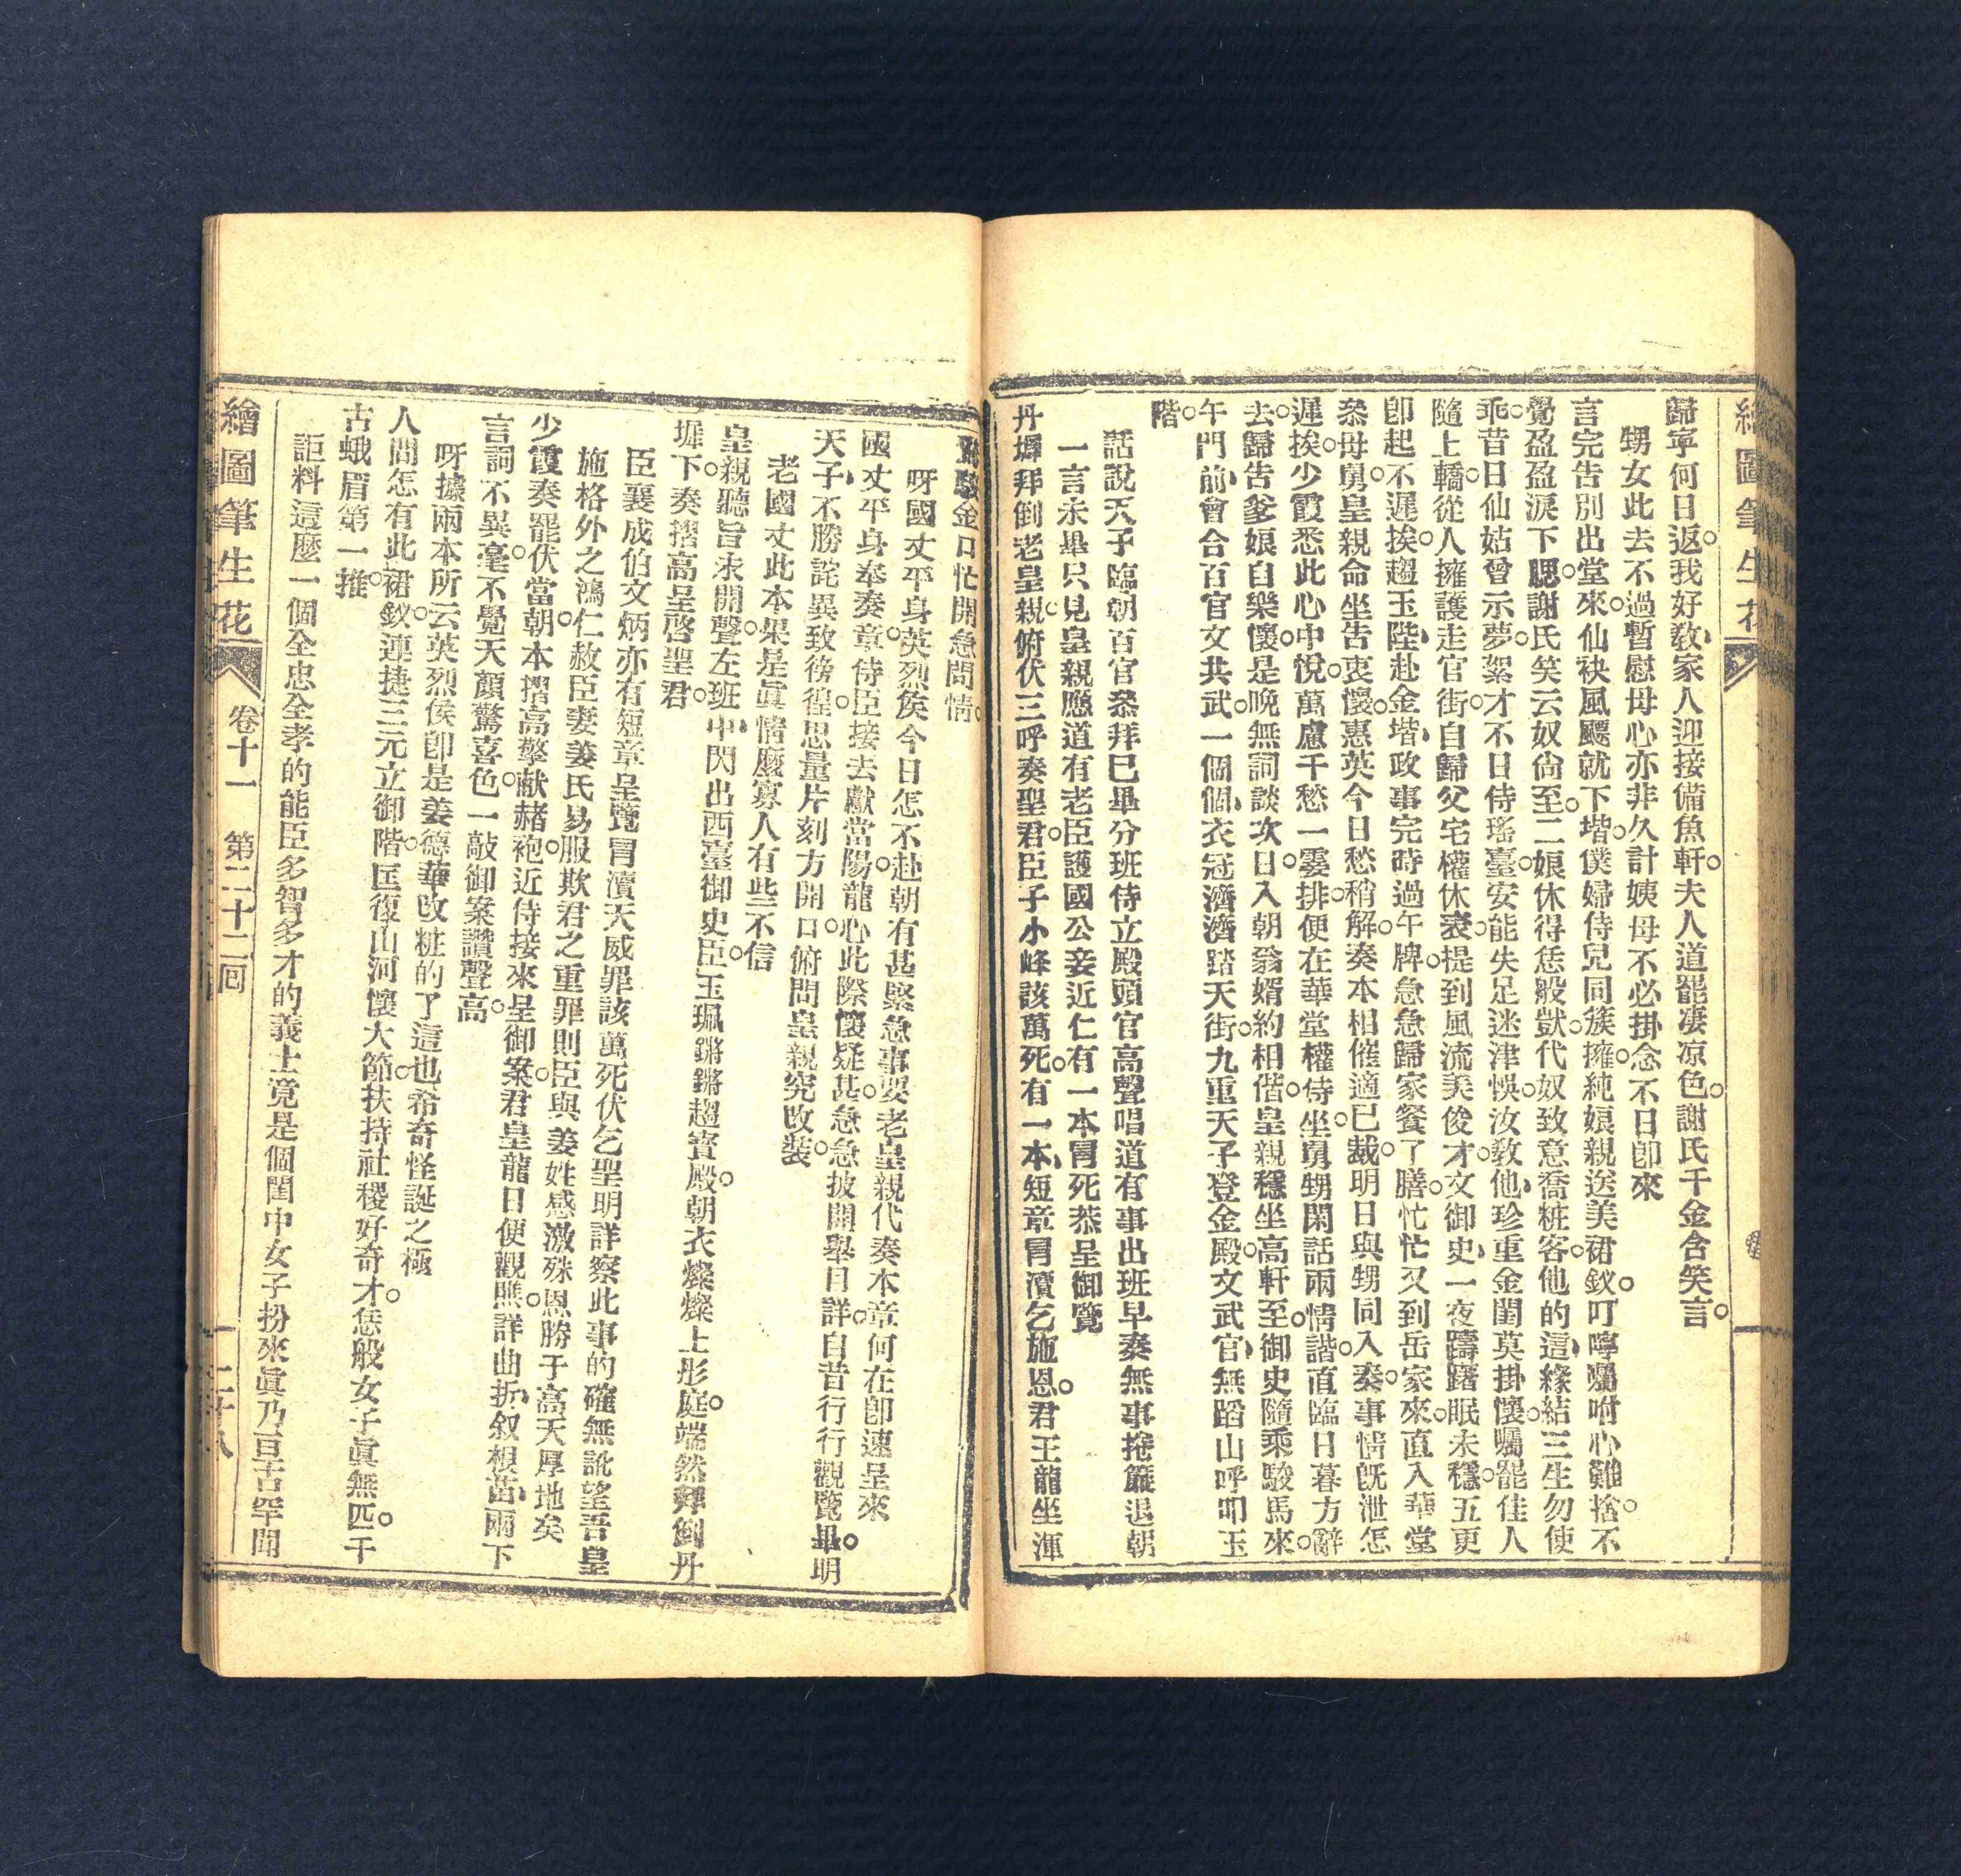 繪圖筆生花
歸寧何日返。我好敎家人迎接備魚軒。夫人道罷凄凉色。謝氏千金含笑言。
甥女此去不過暫慰母心亦非久計姨母不必掛念不日卽來
言完告別出堂來。仙袂風飃就下堦。僕婦侍兒同簇擁。純娘親送美裙釵。叮嚀囑咐心難捨。不
覺盈盈淚下腮。謝氏笑云奴尙至。二娘休得恁般獃。代奴致意喬粧客。他的這緣結三生勿使
乖。昔日仙姑曾示夢。絮才不日侍瑤臺。安能失足迷津悞。汝敎他珍重金閨莫掛懷。囑罷佳人
隨上轎。從人擁護走官街。自歸父宅權休表。提到風流美俊才。文御史一夜躊躇眠未穩。五更
卽起不遲挨。趨玉陛赴金堦政事完時過午牌。急急歸家餐了膳。忙忙又到岳家來。直入華堂
叅母舅。皇親命坐告衷懷。惠英今日愁稍解。奏本相催適已裁。明日與甥同入奏。事情旣泄怎
遲挨。少霞悉此心中悅。萬慮千愁一霎排。便在華堂權侍坐。舅甥閑話兩情諧。直臨日暮方辭
去。歸告爹娘自樂懷。是晚無詞談次日。入朝翁婿約相偕。皇親穩坐高軒至。御史隨乘駿馬來。
午門前會合百官文共武。一個個衣冠濟濟踏天街。九重天子登金殿。文武官無蹈山呼叩玉
階。
話說天子臨朝百官叅拜已畢分班侍立殿頭官高聲唱道有事出班早奏無事捲簾退朝
一言未畢只見皇親應道有老臣護國公姜近仁有一本冐死恭呈御覽
丹墀拜倒老皇親。俯伏三呼奏聖君。臣子小峰該萬死。有一本短章冐瀆乞施恩。君王龍坐渾
金口忙開急問情。
呀國丈平身英烈侯今日怎不赴朝有甚緊急事要老皇親代奏本章何在卽速呈來
國丈平身奉奏章。侍臣接去獻當陽。龍心此際懷疑甚。急急披開舉目詳。自昔行行觀覽畢。明
天子不勝詫異致徬徨。思量片刻方開口。俯問皇親究改裝。
老國丈此本果是眞情麼寡人有些不信
皇親聽旨未開聲。左班中閃出西臺御史臣。玉珮鏘鏘趨寳殿。朝衣燦燦上彤庭。端然拜倒丹
墀下。奏摺高呈啓聖君。
臣襄成伯文炳亦有短章呈覽冐瀆天威罪該萬死伏乞聖明詳察此事的確無訛望吾皇
施格外之鴻仁赦臣妻姜氏易服欺君之重罪則臣與姜姓感激殊恩勝于高天厚地矣
少霞奏罷伏當朝。本摺高擎献赭袍。近侍接來呈御案。君皇龍目便觀瞧。詳曲折叙根苗。兩下
言詞不異毫。不覺天顏驚喜色。一敲御案讚聲高。
呀據兩本所云英烈侯卽是姜德華改粧的了這也希奇怪誕之極
人間怎有此裙釵。連捷三元立御階。匡復山河懷大節。扶持社稷好奇才。恁般女子眞無匹。千
古蛾眉第一推。
詎料這麼一個全忠全孝的能臣多智多才的義士竟是個閨中女子扮來眞乃亘古罕聞
繪圖筆生花 卷十一 第二十二囘 二十八